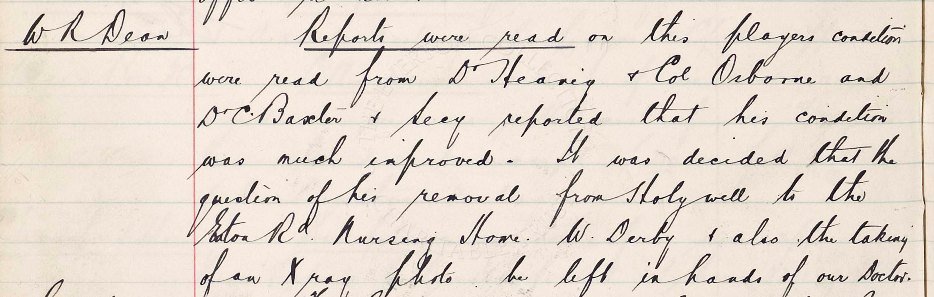 W R Dean Reports were read on this players condition
were read from Dr Heanig & Col Osborne and
Dr C. Baxter & Secy reported that his condition
was much improved. It was decided that the
question of his removal from Holywell to the
Eaton Rd. Nursing Home. W. Derby & also the taking
of an X ray photo be left in hands of our Doctor.